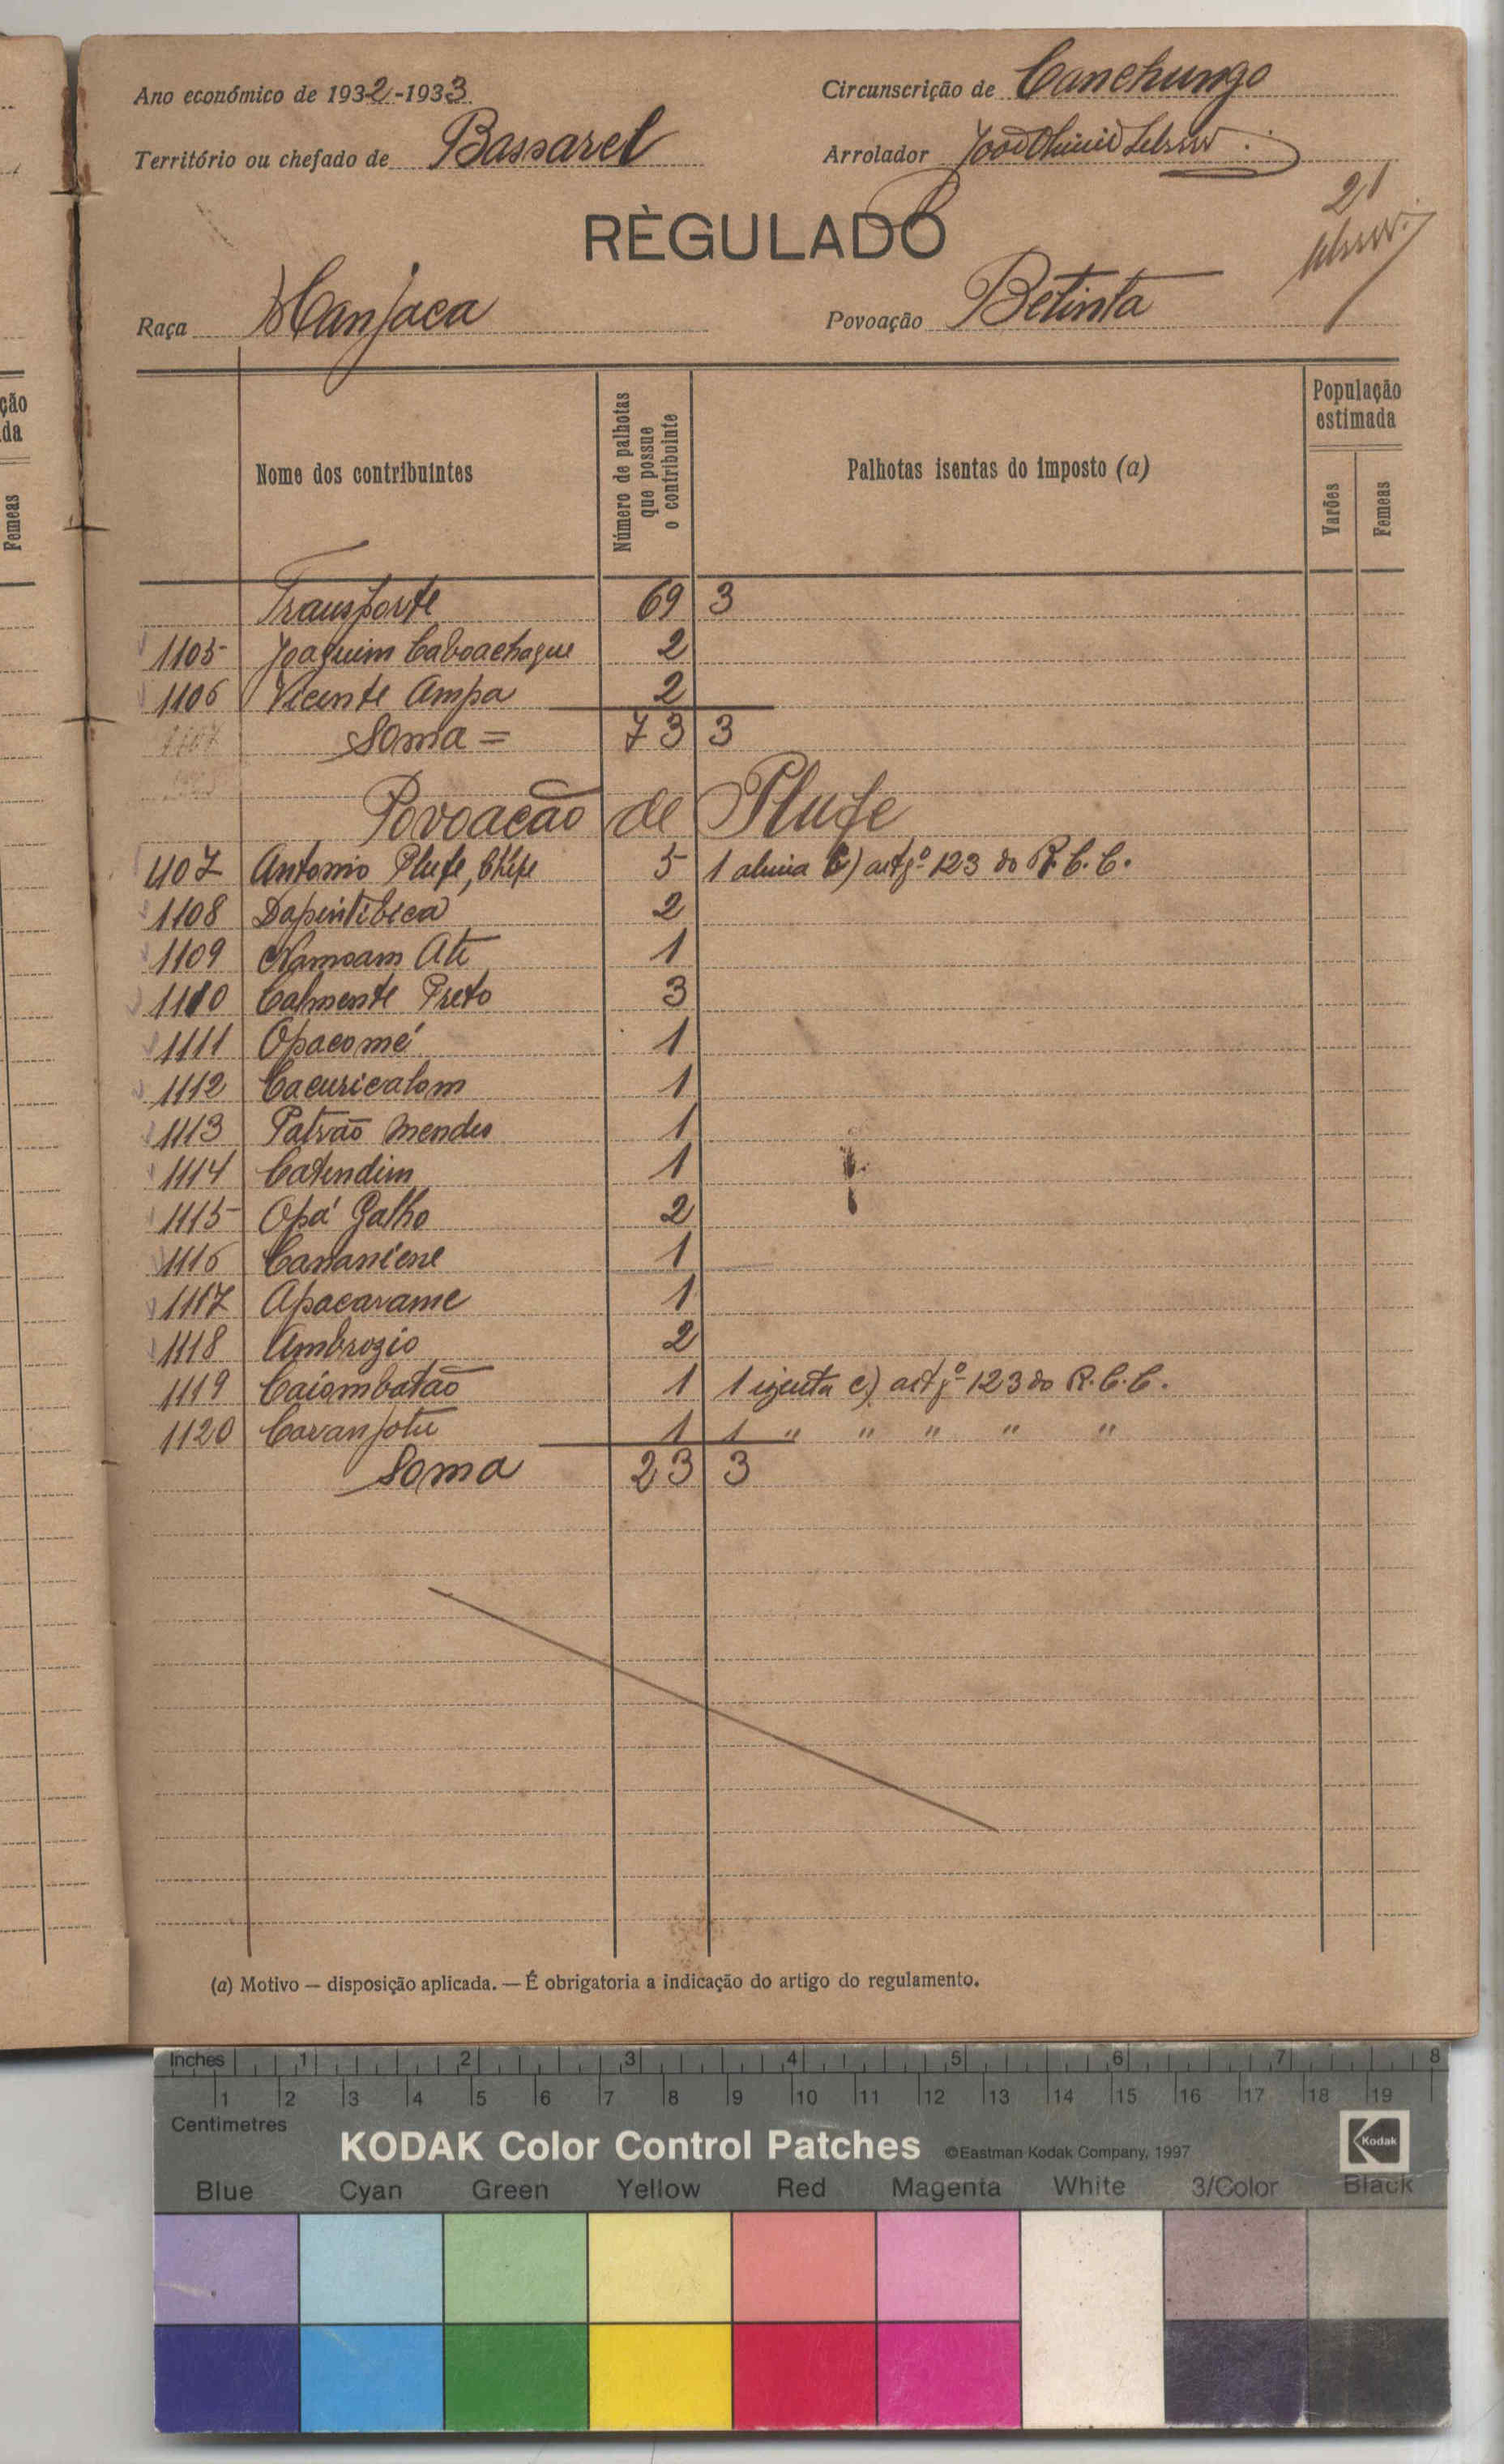 Ano económico de 1932-1933
Circunscrição de Canchungo
Território ou chefado de Bassarel
Arrolador
21
RÈGULADO
Raça Manjaca
Povoação Betinta
Nome dos contribuintes
Número de palhotas que possue o contribuinte
Palhotas isentas do imposto (a)
População estimada
Varões
Femeas
Transporte 69 3
1105 Joaquim Caboachague 2
1106 Vicente Ampa 2
Soma = 73 3
Povoacão de Plufe
1107 Antonio Plufe, Chefe 5 1 alinia C) artgº 123 do R.C.C.
1108 Dapintibica 2
1109 Namoam Ati 1
1110 Calmente Preto 3
1111 Opacomé 1
1112 Cacuricalom 1
1113 Patrão Mendes 1
1114 Catendim 1
1115 Opá Galho 2
1116 Cananiene 1
1117 Apacarame 1
1118 Ambrozio 2
1119 Caiombatão 1 1 izenta c) artgº 123 do R.C.C.
1120 Cavanjotu 1 1 " " " " "
Soma 23 3
(a) Motivo — disposição aplicada. — É obrigatoria a indicação do artigo do regulamento.
ção
da
Femeas
Inches 1 2 3 4 5 6 7 8
1 2 3 4 5 6 7 8 9 10 11 12 13 14 15 16 17 18 19
Centimetres
KODAK Color Control Patches ©Eastman Kodak Company, 1997 Kodak
Blue Cyan Green Yellow Red Magenta White 3/Color Black